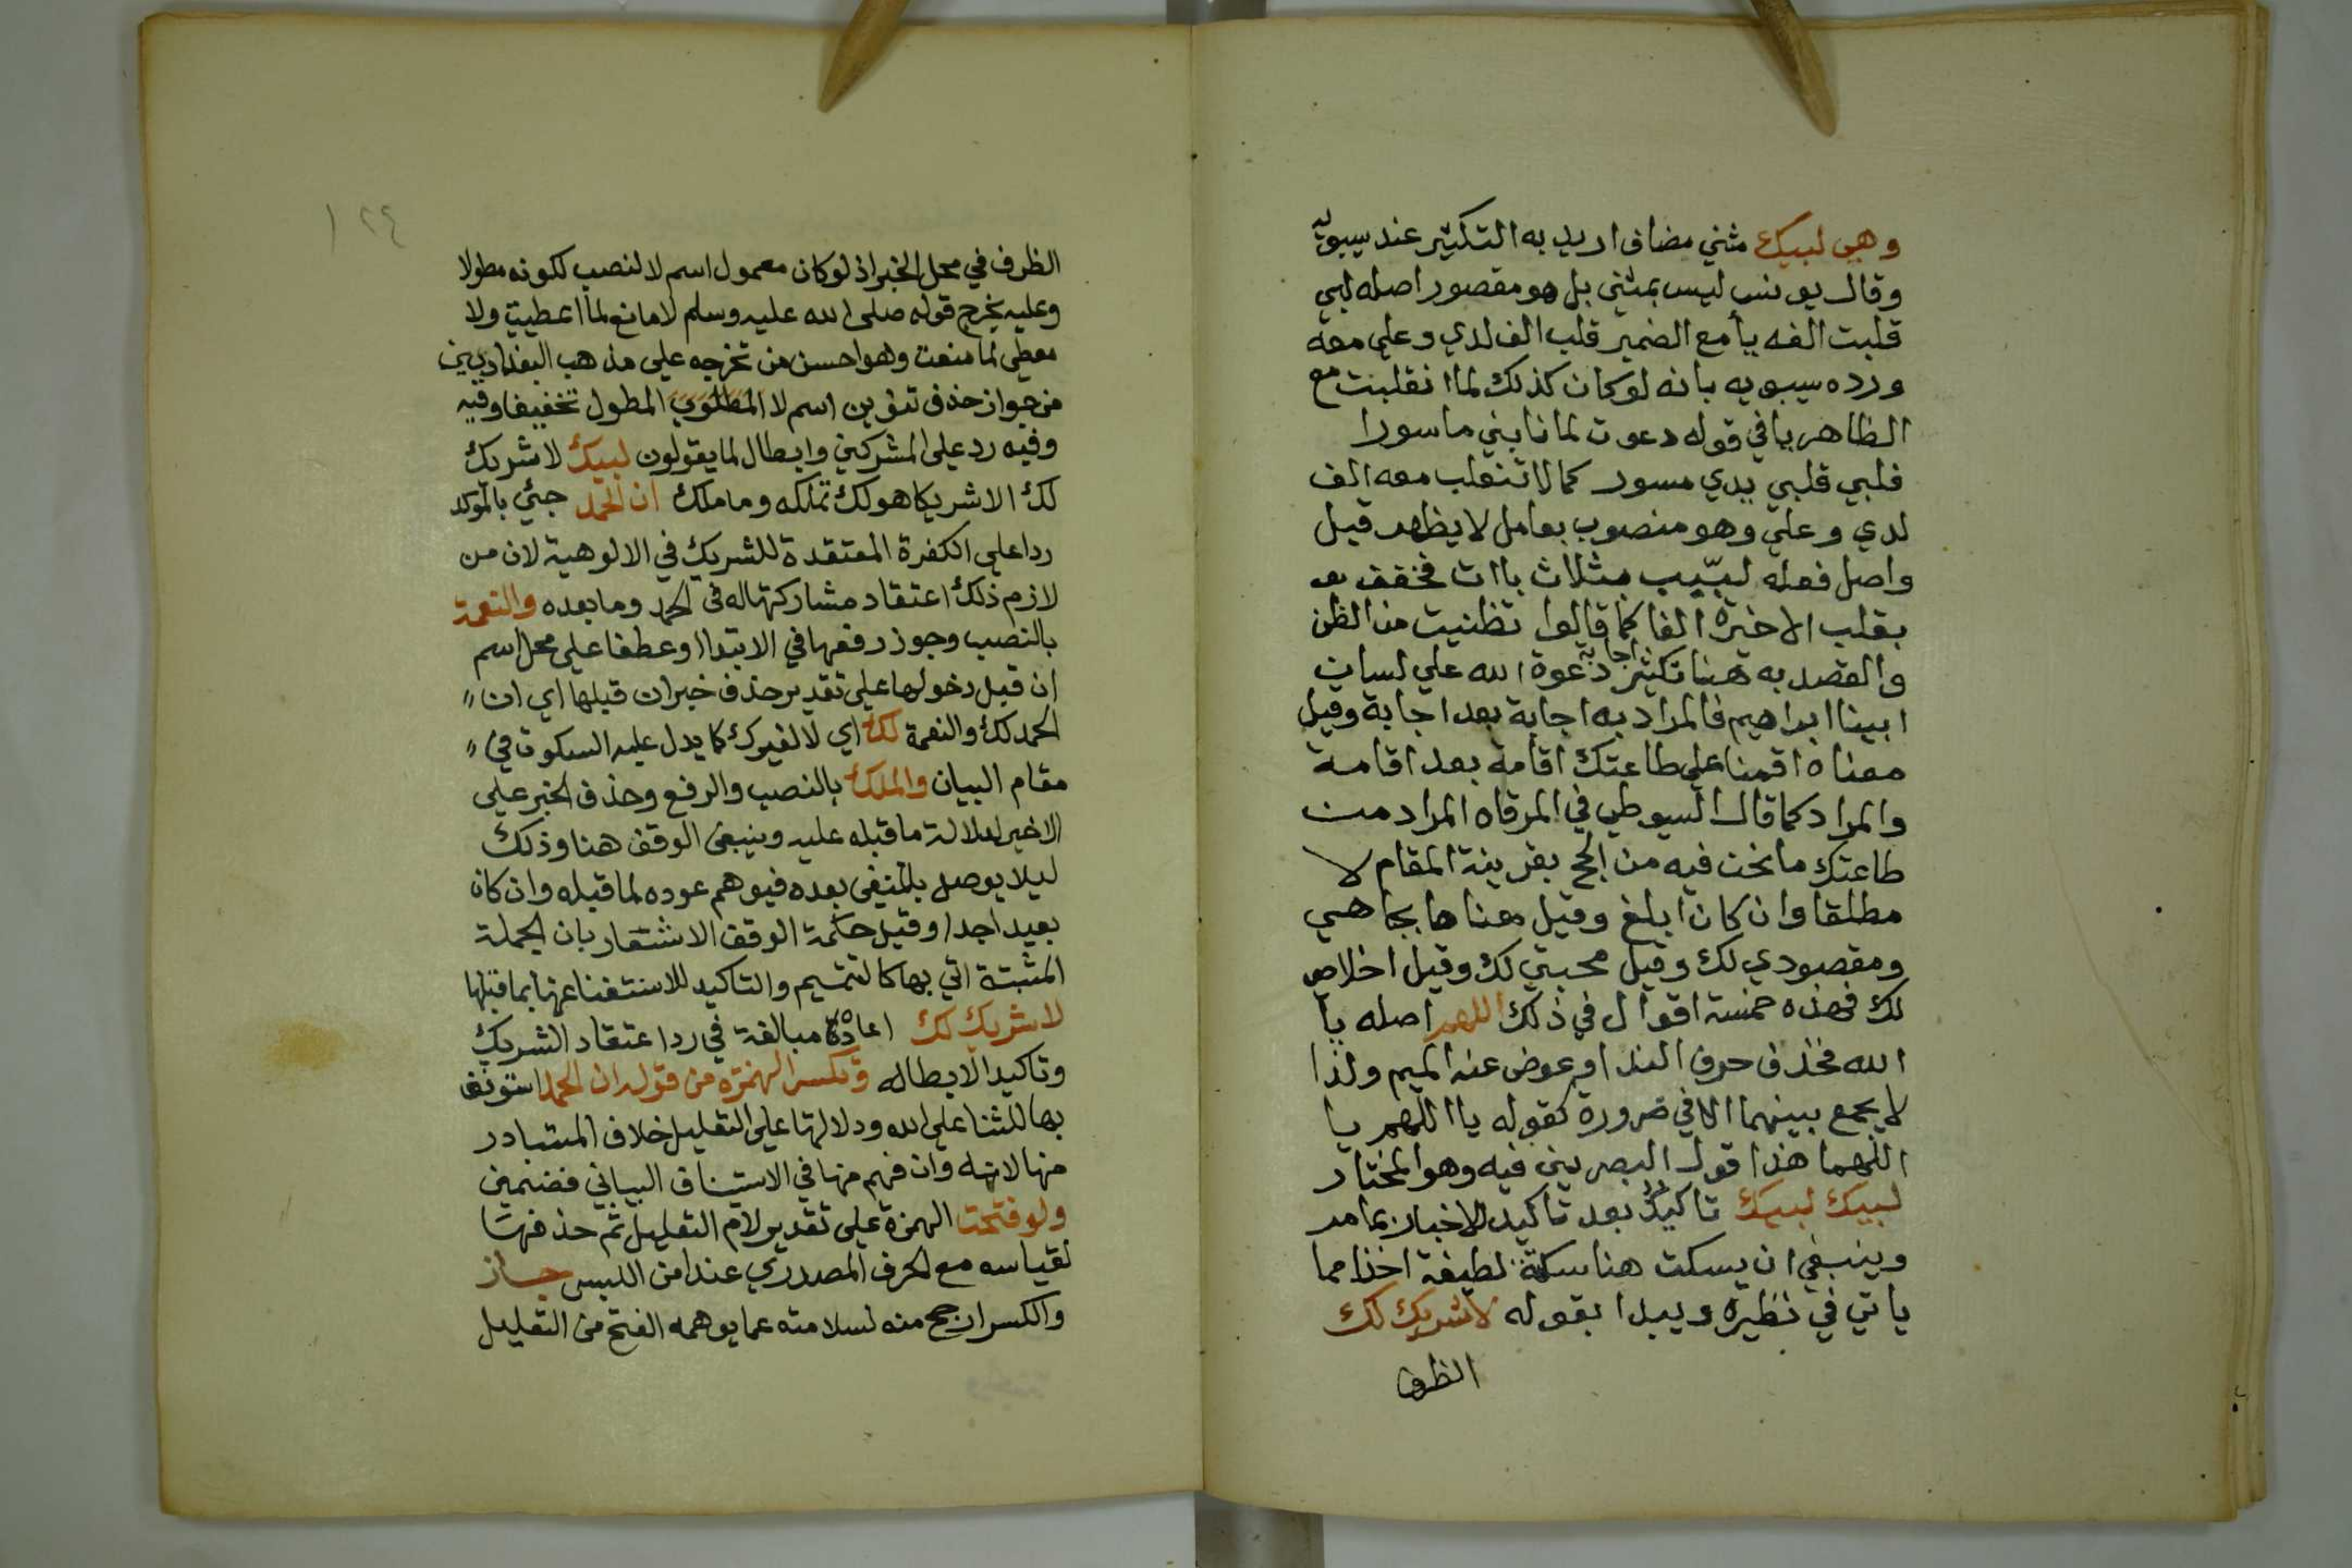 وهي لبيك مثني مضاف اريد به التكثير عند سيبويه
وقال يونس ليس بمثنى بل هو مقصور اصله لبي
قلبت الفه يأ مع الضمير قلب الف لدي وعلي معه
ورده سيبويه بانه لو كان كذلك لما انقلبت مع
الظاهر يا في قوله دعوت لما نابني ماسورا
فلبي فلبي يدي مسور كما لا تنقلب معه الف
لدي وعلي وهو منصوب بعامل لا يظهر قيل
واصل فعله لبّب بثلاث باات فخفف
بقلب الاخيرة الفا كما قالوا تظنيت من الظن
والقصد به هنا تكثير اجابة دعوة الله علي لسان
ابينا ابراهيم فالمراد به اجابة بعد اجابة وقيل
معناه اقمنا علي طاعتك اقامة بعد اقامة
والمراد كما قال السيوطي في المرقاه المراد من
طاعتك ما نحن فيه من الحج بقرينة المقام لا
مطلقا وان كان ابلغ وقيل معناها اتجاهي
ومقصودي لك وقيل محبتي لك وقيل اخلاص
لك فهذه خمسة اقوال في ذلك اللهم اصله يا
الله فحذف حرف الندا وعوض عنه الميم ولذا
لا يجمع بينهما الا في ضرورة كقوله يا اللهم يا
اللهما هذا قول البصريين فيه وهو المختار
لبيك لبيك تاكيد بعد تاكيد للاخبار بما مر
وينبغي ان يسكت هنا سكتة لطيفة اخذا مما
ياتي في نظيره ويبدا بقوله لا شريك لك
الظرف
١٢٤
الظرف في محل الخبر اذ لو كان معمول اسم لا لنصب لكونه مطولا
وعليه يخرج قوله صلى الله عليه وسلم لا مانع لما اعطيت ولا
معطي لما منعت وهو احسن من تخرجه علي مذهب البغداديين
من جواز حذف تنوين اسم لا المطلوي المطول تخفيفا وفيه
وفيه رد علي المشركين وابطال لما يقولون لبيك لا شريك
لك الا شريكا هو لك تملكه وما ملك ان الحمد جئي بالموكد
ردا علي الكفرة المعتقدة للشريك في الالوهية لان من
لازم ذلك اعتقاد مشاركتها له في الحمد وما بعده والنعمة
بالنصب وجوز رفعها في الابتدا او عطفا علي محل اسم
ان قبل دخولها علي تقدير حذف خبر ان قبلها اي ان
الحمد لك والنعمة لك اي لا لغيرك كما يدل عليه السكوت في
مقام البيان والملك بالنصب والرفع وحذف الخبر علي
الاخير لدلالة ما قبله عليه وينبغي الوقف هنا وذلك
ليلا يوصل بالمنفي بعده فيوهم عوده لما قبله وان كان
بعيدا جدا وقيل حكمة الوقف الاشعار بان الجملة
المثبتة اتي بها كالتتميم والتاكيد للاستغنا عنها بما قبلها
لا شريك لك اعاده مبالغة في رد اعتقاد الشريك
وتاكيد الابطاله وتكسر الهمزة من قوله ان الحمد استونف
بها للثنا علي الله ودلالتها علي التعليل خلاف المتبادر
منها لانه وان فهم منها في الاستيناف البياني فضمين
ولو فتحت الهمزة علي تقدير لام التعليل ثم حذفها
لقياسه مع الحرف المصدري عند امن اللبس جاز
والكسر ارجح منه لسلامته عما يوهمه الفتح من التعليل